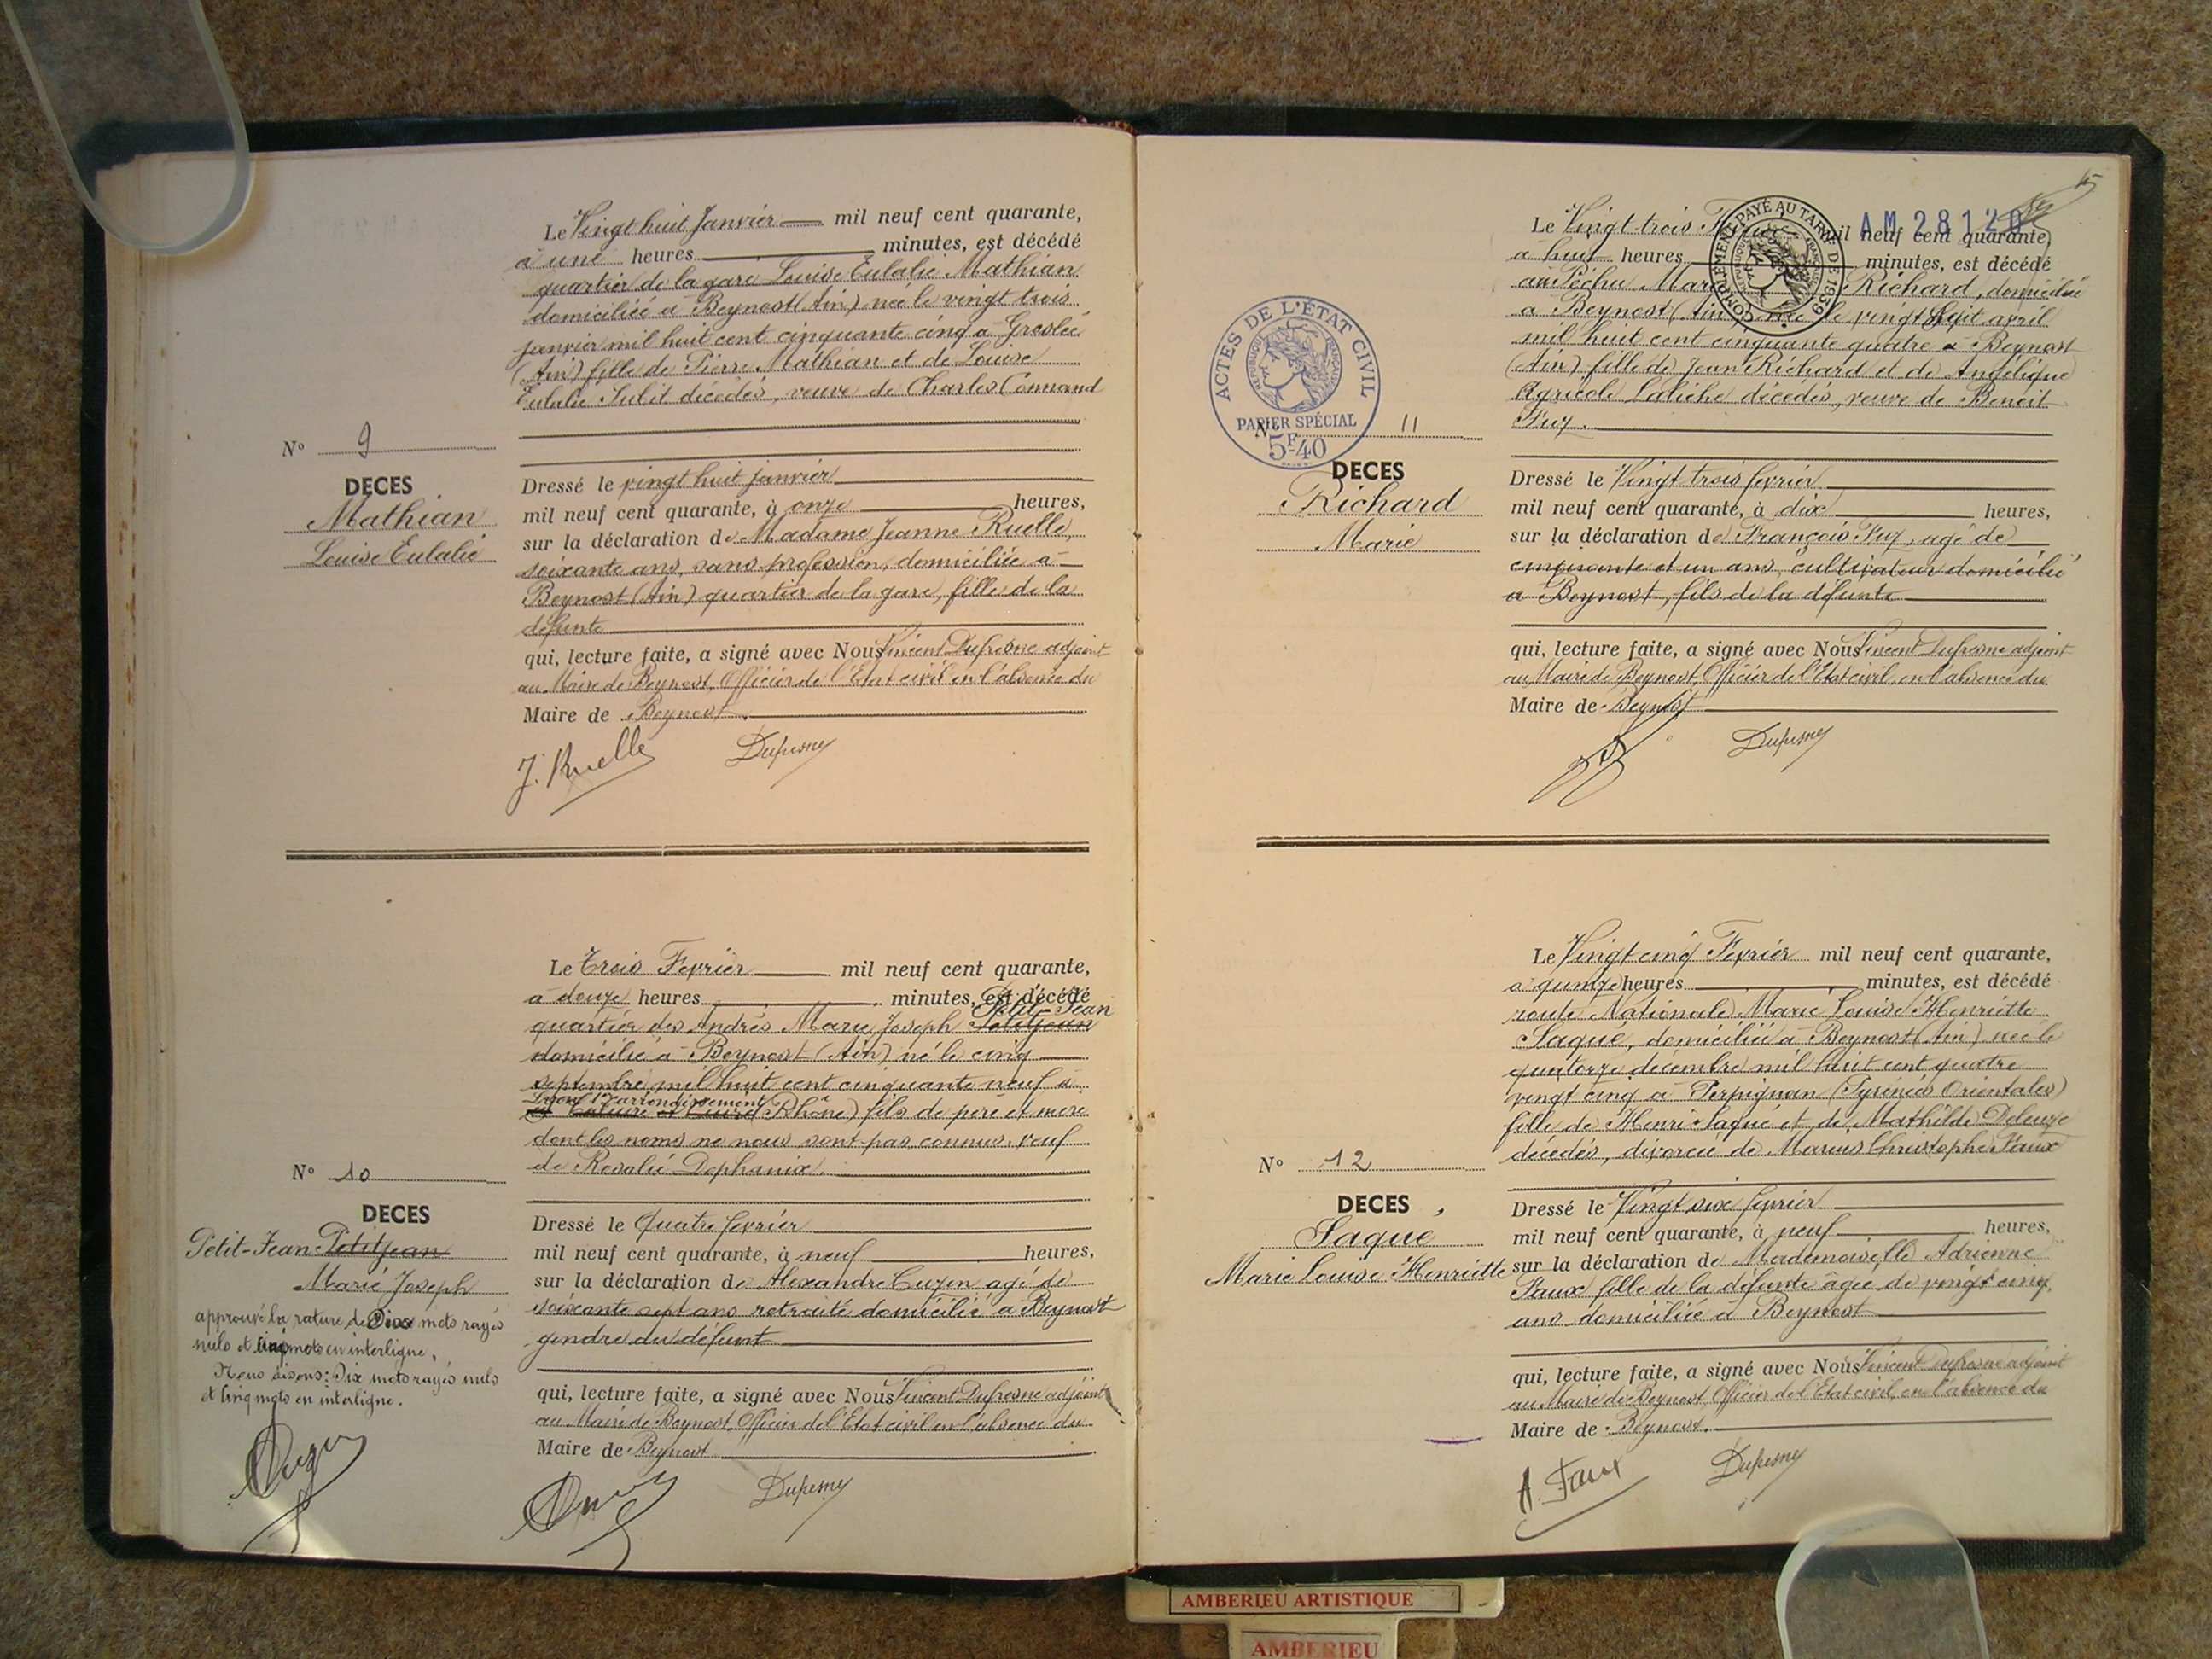 Le Vingt huit Janvier mil neuf cent quarante,
à une heures minutes, est décédé
quartier de la gare Louise Eulalie Mathian
domiciliée à Beynost (Ain) née le vingt trois
janvier mil huit cent cinquante cinq à Groslée
(Ain) fille de Pierre Mathian et de Louise
Eulalie Subit décédés, veuve de Charles Connand
N° 9
DECES
Mathian
Louise Eulalie
Dressé le vingt huit janvier
mil neuf cent quarante, à onze heures,
sur la déclaration de Madame Jeanne Ruelle,
soixante ans, sans profession, domiciliée à
Beynost (Ain) quartier de la gare, fille de la
défunte
qui, lecture faite, a signé avec Nous Vincent Dufresne adjoint
au Maire de Beynost, Officier de l'Etat civil en l'absence du
Maire de Beynost.
J. Ruelle Dufresne
Le Trois Fevrier mil neuf cent quarante,
à douze heures minutes, est décédé
Petit-Jean
quartier des Andrés Marie Joseph Petitjean
domicilié à Beynost (Ain) né le cinq
septembre mil huit cent cinquante neuf à
Lyon 1er arrondissement
(Rhône) fils de père et mère
dont les noms ne nous sont pas connus, veuf
de Rosalie Dephanix.
N° 10
DECES
Petit-Jean Petitjean
Marie Joseph
approuvé la rature de Dix mots rayés
nuls et cinq mots en interligne,
Nous disons: Dix mots rayés nuls
et cinq mots en interligne.
Cuzin
Dressé le Quatre fevrier
mil neuf cent quarante, à neuf heures,
sur la déclaration de Alexandre Cuzin agé de
soixante sept ans retraité domicilié à Beynost
gendre du défunt
qui, lecture faite, a signé avec Nous Vincent Dufresne adjoint
au Maire de Beynost, Officier de l'Etat civil en l'absence du
Maire de Beynost
Cuzin Dufresne
15
AM 28120
COMPLÉMENT PAYÉ AU TARIF DE 1939
Le Vingt trois mil neuf cent quarante,
à huit heures minutes, est décédé
au Péchu Marie Richard, domiciliée
à Beynost (Ain) née le vingt sept avril
mil huit cent cinquante quatre à Beynost
(Ain) fille de Jean Richard et de Angélique
Agricole Laliche décédés, veuve de Benoit
Fuz.
ACTES DE L'ÉTAT CIVIL
RÉPUBLIQUE FRANÇAISE
PAPIER SPÉCIAL
5F40
N° 11
DECES
Richard
Marie
Dressé le Vingt trois fevrier
mil neuf cent quarante, à dix heures,
sur la déclaration de François Fuz, agé de
cinquante et un ans, cultivateur domicilié
à Beynost, fils de la défunte
qui, lecture faite, a signé avec Nous Vincent Dufresne adjoint
au Maire de Beynost, Officier de l'Etat civil, en l'absence du
Maire de Beynost
Dufresne
Le Vingt cinq Fevrier mil neuf cent quarante,
à quinze heures minutes, est décédé
route Nationale Marie Louise Henriette
Saqué, domiciliée à Beynost (Ain) née le
quatorze décembre mil huit cent quatre
vingt cinq à Perpignan (Pyrénées Orientales)
fille de Henri Saqué et de Mathilde Deleuze
décédés, divorcée de Marius Christophe Faux
N° 12
DECES
Saque
Marie Louise Henriette
Dressé le Vingt six fevrier
mil neuf cent quarante, à neuf heures,
sur la déclaration de Mademoiselle Adrienne
Faux fille de la défunte âgée de vingt cinq
ans domiciliée à Beynost
qui, lecture faite, a signé avec Nous Vincent Dufresne adjoint
au Maire de Beynost, Officier de l'Etat civil, en l'absence du
Maire de Beynost.
A. Faux Dufresne
AMBERIEU ARTISTIQUE
AMBERIEU